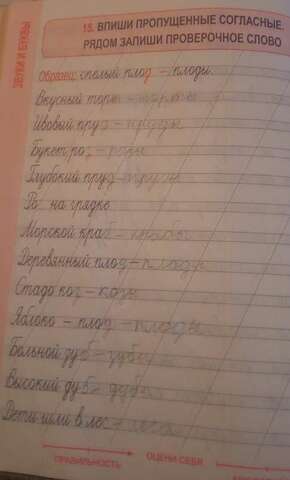 ЗВУКИ И БУКВЫ
15. ВПИШИ ПРОПУЩЕННЫЕ СОГЛАСНЫЕ.
РЯДОМ ЗАПИШИ ПРОВЕРОЧНОЕ СЛОВО
Образец: спелый плод – плоды.
Вкусный торт – торты
Ивовый пруд – пруды
Букет роз – розы
Глубокий пруд – пруды
Ро на грядке
Морской краб – крабы
Деревянный плод – плоды
Стадо коз – козы
Яблоко – плод – плоды
Больной зуб – зубы
Высокий дуб – дубы
Дети шли в лес – леса
ПРАВИЛЬНОСТЬ
ОЦЕНИ СЕБЯ